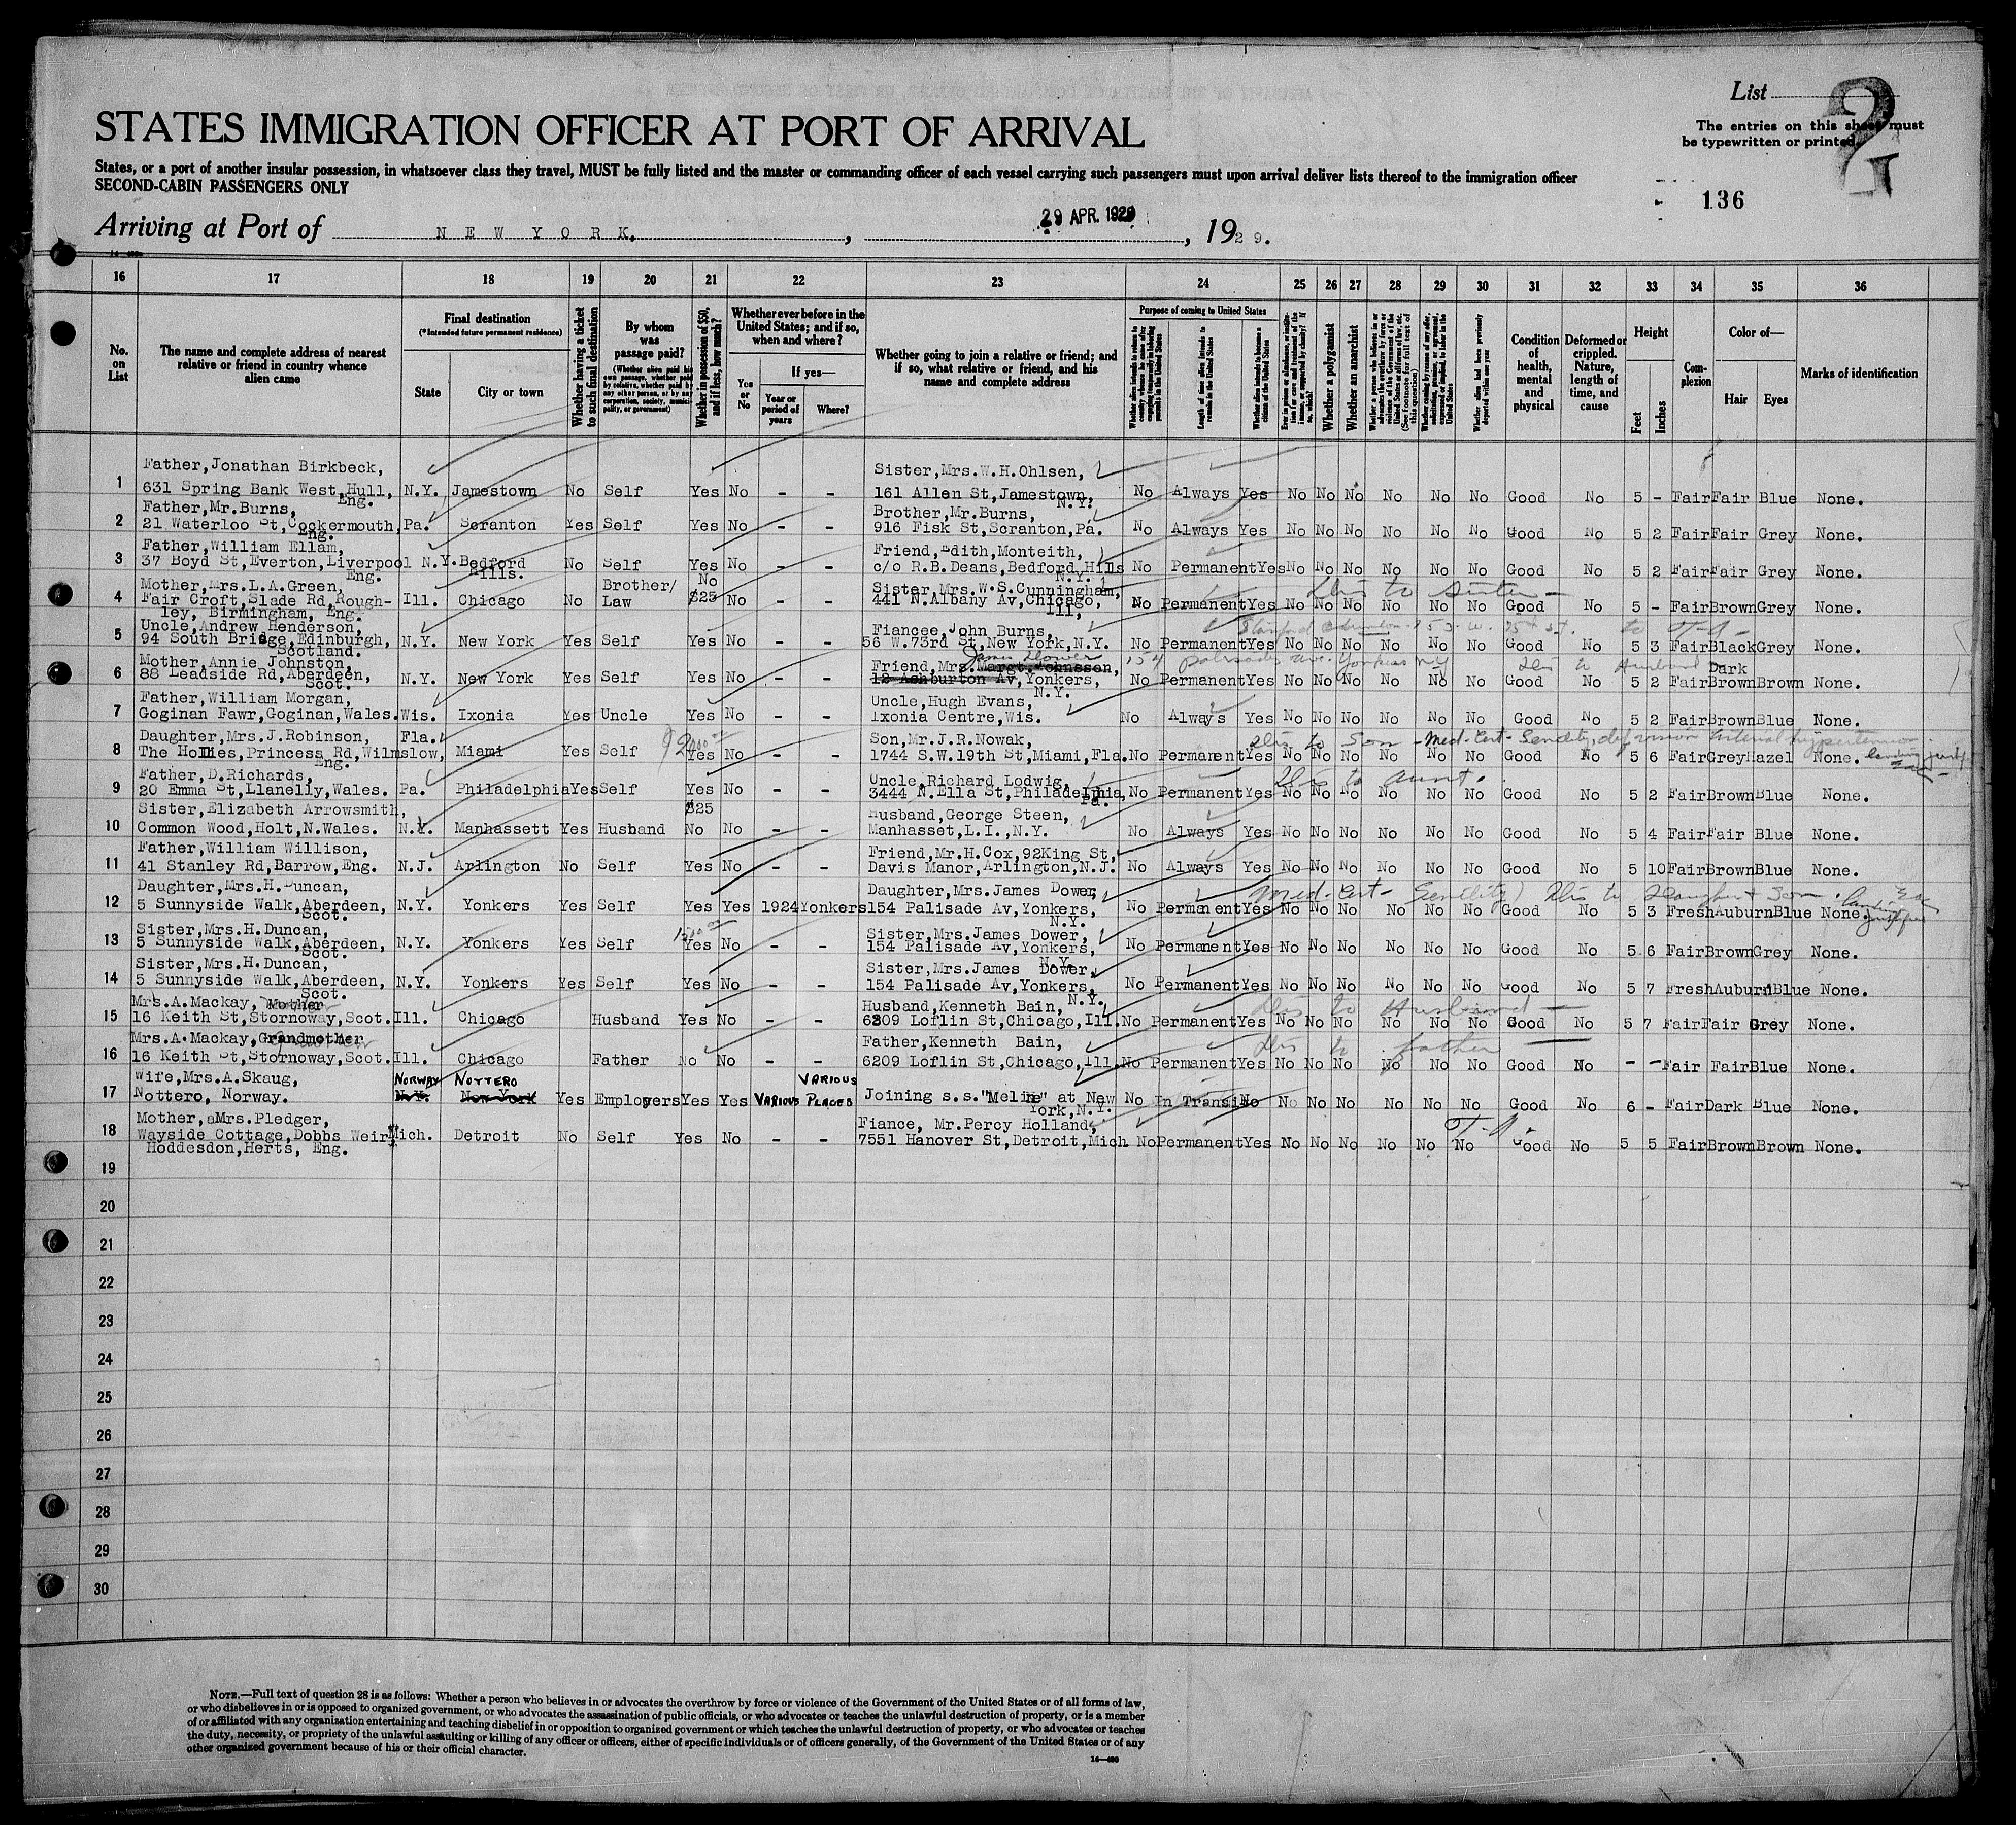 List
2
G
STATES IMMIGRATION OFFICER AT PORT OF ARRIVAL
The entries on this sheet must
be typewritten or printed.
States, or a port of another insular possession, in whatsoever class they travel, MUST be fully listed and the master or commanding officer of each vessel carrying such passengers must upon arrival deliver lists thereof to the immigration officer
SECOND-CABIN PASSENGERS ONLY
136
Arriving at Port of NEW YORK, , 29 APR. 1929 , 1929.
16 17 18 19 20 21 22 23 24 25 26 27 28 29 30 31 32 33 34 35 36
No. on List
The name and complete address of nearest relative or friend in country whence alien came
Final destination
(*Intended future permanent residence)
State City or town
Whether having a ticket to such final destination
By whom was passage paid?
(Whether alien paid his own passage, whether paid by relative, whether paid by any other person, or by any corporation, society, municipality, or government)
Whether in possession of $50, and if less, how much?
Whether ever before in the United States; and if so, when and where?
Yes or No
If yes—
Year or period of years
Where?
Whether going to join a relative or friend; and if so, what relative or friend, and his name and complete address
Purpose of coming to United States
Whether alien intends to return to country whence he came after engaging temporarily in laboring pursuits in the United States
Length of time alien intends to remain in the United States
Whether alien intends to become a citizen of the United States
Whether a polygamist
Whether an anarchist
Condition of health, mental and physical
Deformed or crippled. Nature, length of time, and cause
Height
Feet Inches
Complexion
Color of—
Hair Eyes
Marks of identification
1 Father,Jonathan Birkbeck, Sister,Mrs.W.H.Ohlsen,
631 Spring Bank West,Hull, Eng. N.Y. Jamestown No Self Yes No - - 161 Allen St,Jamestown, N.Y. No Always Yes No No No No No No Good No 5 - Fair Fair Blue None.
2 Father,Mr.Burns, Brother,Mr.Burns,
21 Waterloo St,Cockermouth, Eng. Pa. Scranton Yes Self Yes No - - 916 Fisk St,Scranton,Pa. No Always Yes No No No No No No Good No 5 2 Fair Fair Grey None.
3 Father,William Ellam, Friend,Edith,Monteith,
37 Boyd St,Everton,Liverpool Eng. N.Y. Bedford Hills. No Self Yes No - - c/o R.B.Deans,Bedford Hills N.Y. No Permanent Yes No No No No No No Good No 5 2 Fair Fair Grey None.
4 Mother,Mrs.L.A.Green, Brother/ No Sister,Mrs.W.S.Cunningham, Dis to sister
Fair Croft,Slade Rd,Rough- Ill. Chicago No Law $25 No - - 441 N.Albany Av,Chicago, Ill, No Permanent Yes No No No No No No Good No 5 - Fair Brown Grey None.
ley, Birmingham, Eng.
5 Uncle,Andrew Henderson, Fiancee,John Burns, to T.A.
94 South Bridge,Edinburgh, Scotland. N.Y. New York Yes Self Yes No - - 56 W.73rd St,New York,N.Y. No Permanent Yes No No No No No No Good No 5 3 Fair Black Grey None.
6 Mother,Annie Johnston, Friend,Mrs.Margt.Johnssen, James Dower 154 Palisades ave. Yonkers N-Y Dis to Husband Dark
88 Leadside Rd,Aberdeen, Scot. N.Y. New York Yes Self Yes No - - 12 Ashburton Av,Yonkers, N.Y. No Permanent Yes No No No No No No Good No 5 2 Fair Brown Brown None.
7 Father,William Morgan, Uncle,Hugh Evans,
Goginan Fawr,Goginan,Wales. Wis. Ixonia Yes Uncle Yes No - - Ixonia Centre,Wis. No Always Yes No No No No No No Good No 5 2 Fair Brown Blue None.
8 Daughter,Mrs.J.Robinson, Fla. Son,Mr.J.R.Nowak, Dis to Son - Med. Cert - Senility, def vision
The Hollies,Princess Rd,Wilmslow, Eng. Miami Yes Self Yes No - - 1744 S.W.19th St,Miami,Fla. No Permanent Yes No No No No No No Good No 5 6 Fair Grey Hazel None.
9 Father,D.Richards, Uncle,Richard Lodwig, Dis to aunt.
20 Emma St,Llanelly,Wales. Pa. Philadelphia Yes Self Yes No - - 3444 N.Ella St,Philadelphia, Pa. No Permanent Yes No No No No No No Good No 5 2 Fair Brown Blue None.
10 Sister,Elizabeth Arrowsmith, $25 Husband,George Steen,
Common Wood,Holt,N.Wales. N.Y. Manhassett Yes Husband No No - - Manhasset,L.I.,N.Y. No Always Yes No No No No No No Good No 5 4 Fair Fair Blue None.
11 Father,William Willison, Friend,Mr.H.Cox,92King St,
41 Stanley Rd,Barrow,Eng. N.J. Arlington No Self Yes No - - Davis Manor,Arlington,N.J. No Always Yes No No No No No No Good No 5 10 Fair Brown Blue None.
12 Daughter,Mrs.H.Duncan, Daughter,Mrs.James Dower, Med. Cert - Senility) Dis to Daughter + Son.
5 Sunnyside Walk,Aberdeen, Scot. N.Y. Yonkers Yes Self Yes Yes 1924 Yonkers 154 Palisade Av,Yonkers, N.Y. No Permanent Yes No No No No No No Good No 5 3 Fresh Auburn Blue None.
13 Sister,Mrs.H.Duncan, Sister,Mrs.James Dower,
5 Sunnyside Walk,Aberdeen, Scot. N.Y. Yonkers Yes Self Yes No - - 154 Palisade Av,Yonkers, N.Y. No Permanent Yes No No No No No No Good No 5 6 Fair Brown Grey None.
14 Sister,Mrs.H.Duncan, Sister,Mrs.James Dower,
5 Sunnyside Walk,Aberdeen, Scot. N.Y. Yonkers Yes Self Yes No - - 154 Palisade Av,Yonkers, N.Y. No Permanent Yes No No No No No No Good No 5 7 Fresh Auburn Blue None.
15 Mrs.A.Mackay, Mother Husband,Kenneth Bain, Dis to Husband
16 Keith St,Stornoway,Scot. Ill. Chicago Husband Yes No - - 6209 Loflin St,Chicago,Ill. No Permanent Yes No No No No No No Good No 5 7 Fair Fair Grey None.
16 Mrs.A.Mackay,Grandmother Father,Kenneth Bain, Dis to father
16 Keith St,Stornoway,Scot. Ill. Chicago Father No No - - 6209 Loflin St,Chicago,Ill. No Permanent Yes No No No No No No Good No - - Fair Fair Blue None.
17 Wife,Mrs.A.Skaug, NORWAY NOTTERO VARIOUS
Nottero, Norway. N.Y. New York Yes Employers Yes Yes VARIOUS PLACES Joining s.s."Meline" at New York,N.Y. No In Transit No No No No No No No Good No 6 - Fair Dark Blue None.
18 Mother, Mrs.Pledger, Fiance, Mr.Percy Holland, T.A.
Wayside Cottage,Dobbs Weir Mich. Detroit No Self Yes No - - 7551 Hanover St,Detroit,Mich No Permanent Yes No No No No No No Good No 5 5 Fair Brown Brown None.
Hoddesdon,Herts, Eng.
19
20
21
22
23
24
25
26
27
28
29
30
NOTE.—Full text of question 28 is as follows: Whether a person who believes in or advocates the overthrow by force or violence of the Government of the United States or of all forms of law,
or who disbelieves in or is opposed to organized government, or who advocates the assassination of public officials, or who advocates or teaches the unlawful destruction of property, or is a member
of or affiliated with any organization entertaining and teaching disbelief in or opposition to organized government or which teaches the unlawful destruction of property, or who advocates or teaches
the duty, necessity, or propriety of the unlawful assaulting or killing of any officer or officers, either of specific individuals or of officers generally, of the Government of the United States or of any
other organized government because of his or their official character.
14—430